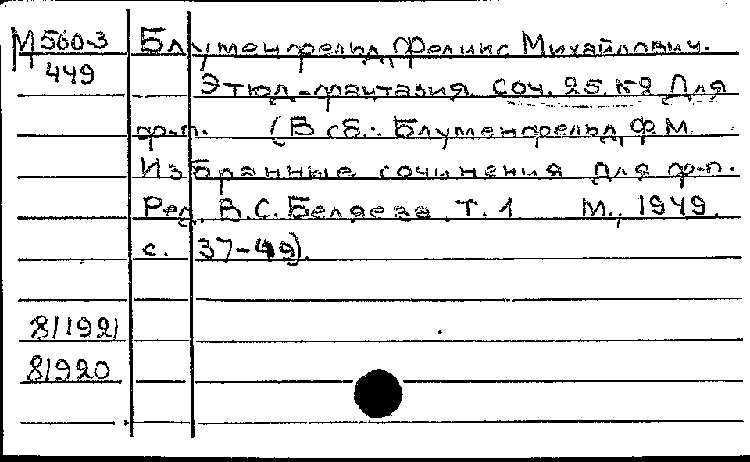 М 560-3 Блуменфельд, Феликс Михайлович.
449 Этюд-фантазия. Соч. 25. №2 Для
ф-п. (В сб.: Блуменфельд, Ф.М.
Избранные сочинения для ф-п.
Ред. В.С. Беляева. Т. 1 М., 1949.
с. 37-49).
81920